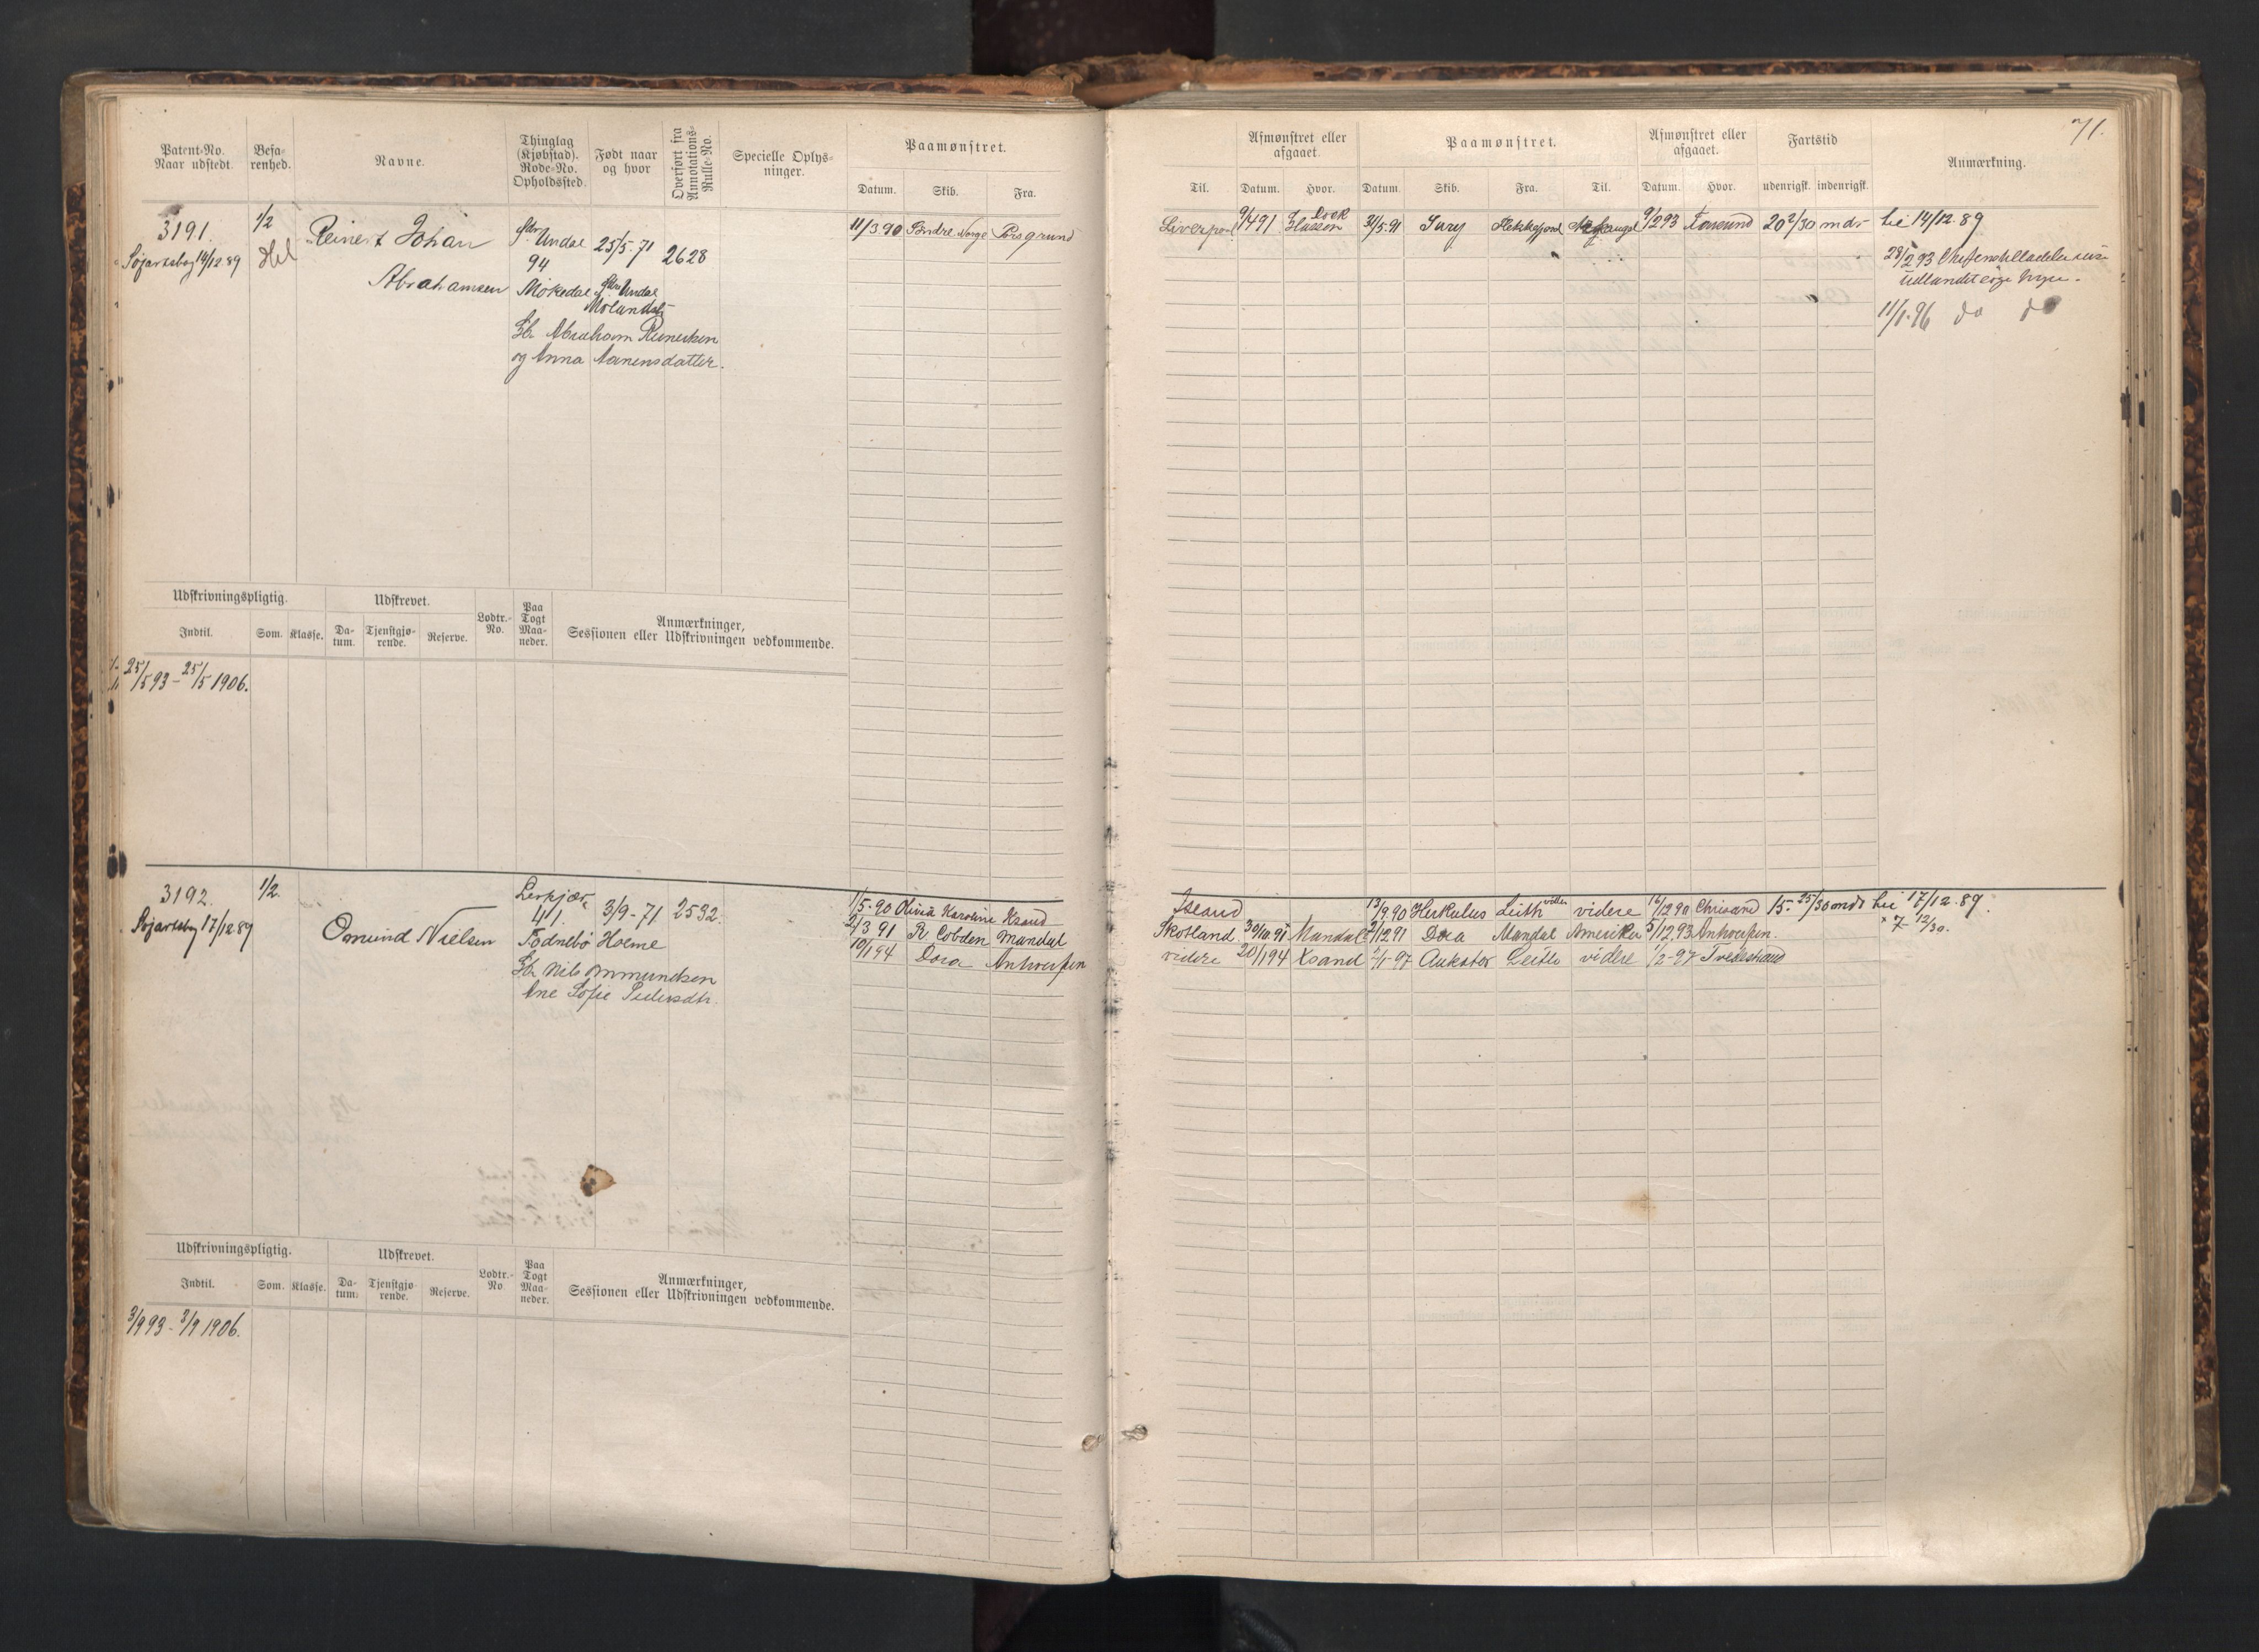 71.
Patent-No.
Naar udstedt.
Befa-
renhed.
Navne.
Thinglag
(Kjøbstad).
Rode-No.
Opholdssted.
Født naar
og hvor
Overført fra
Annotations-
Rulle-No.
Specielle Oplys-
ninger.
Paamønstret.
Datum. Skib. Fra.
3191.
Søfartsbog 14/12 89
1/2
Hel
Reinert Johan
Abrahamsen
Sdr Undal
94
25/5-71
2628
Sdr Undal
Abraham
og Anna Aanensdatter.
11/3 90 Søndre Norge Porsgrund
Udskrivningspligtig.
Udskrevet.
Lodtr.-
No.
Paa
Togt
Maa-
neder.
Anmærkninger,
Sessionen eller Udskrivningen vedkommende.
Indtil. Som. Klasse. Da-
tum. Tjenstgjø-
rende. Reserve.
25/5 93 - 25/5 1906.
3192.
Søfartsbog 17/12 89
1/2.
Omund Nielsen
41.
3/9-71
2592.
Holme
Nils Ommundsen
Ane Sofie Pedersdtr.
1/5-90 Olivia Karoline Ksand
2/3 91 R Cobden Mandal
10/1 94 Dora Antwerpen
Udskrivningspligtig.
Udskrevet.
Lodtr.-
No
Paa
Togt
Maa-
neder.
Anmærkninger,
Sessionen eller Udskrivningen vedkommende.
Indtil. Som. Klasse. Da-
tum. Tjenstgjø-
rende. Reserve.
3/9 93 - 3/9 1906.
Afmønstret eller
afgaaet.
Paamønstret.
Afmønstret eller
afgaaet.
Fartstid
Anmærkning.
Til. Datum. Hvor. Datum. Skib. Fra. Til. Datum. Hvor. udenrigsk. indenrigsk.
Liverpool 9/4 91 31/5-91 Flekkefjord 9/2 93 20 2/30 mdr 14/12-89
28/2 93
11/1-96 do do
13/9 90 Herkulus Leith videre 16/12 90 Chrisand 15- 25/30 mdr 17/12-89.
Skotland 30/10 91 Mandal 2/12 91 Dora Mandal Amerika 5/12 93 Antwerpen. + 7- 12/30.
videre 20/1 94 Ksand Leith videre 1/2-97 Tvedestrand